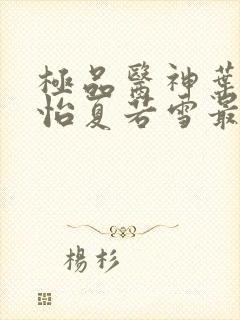 極品醫神葉
怡夏若雪最
楊杉